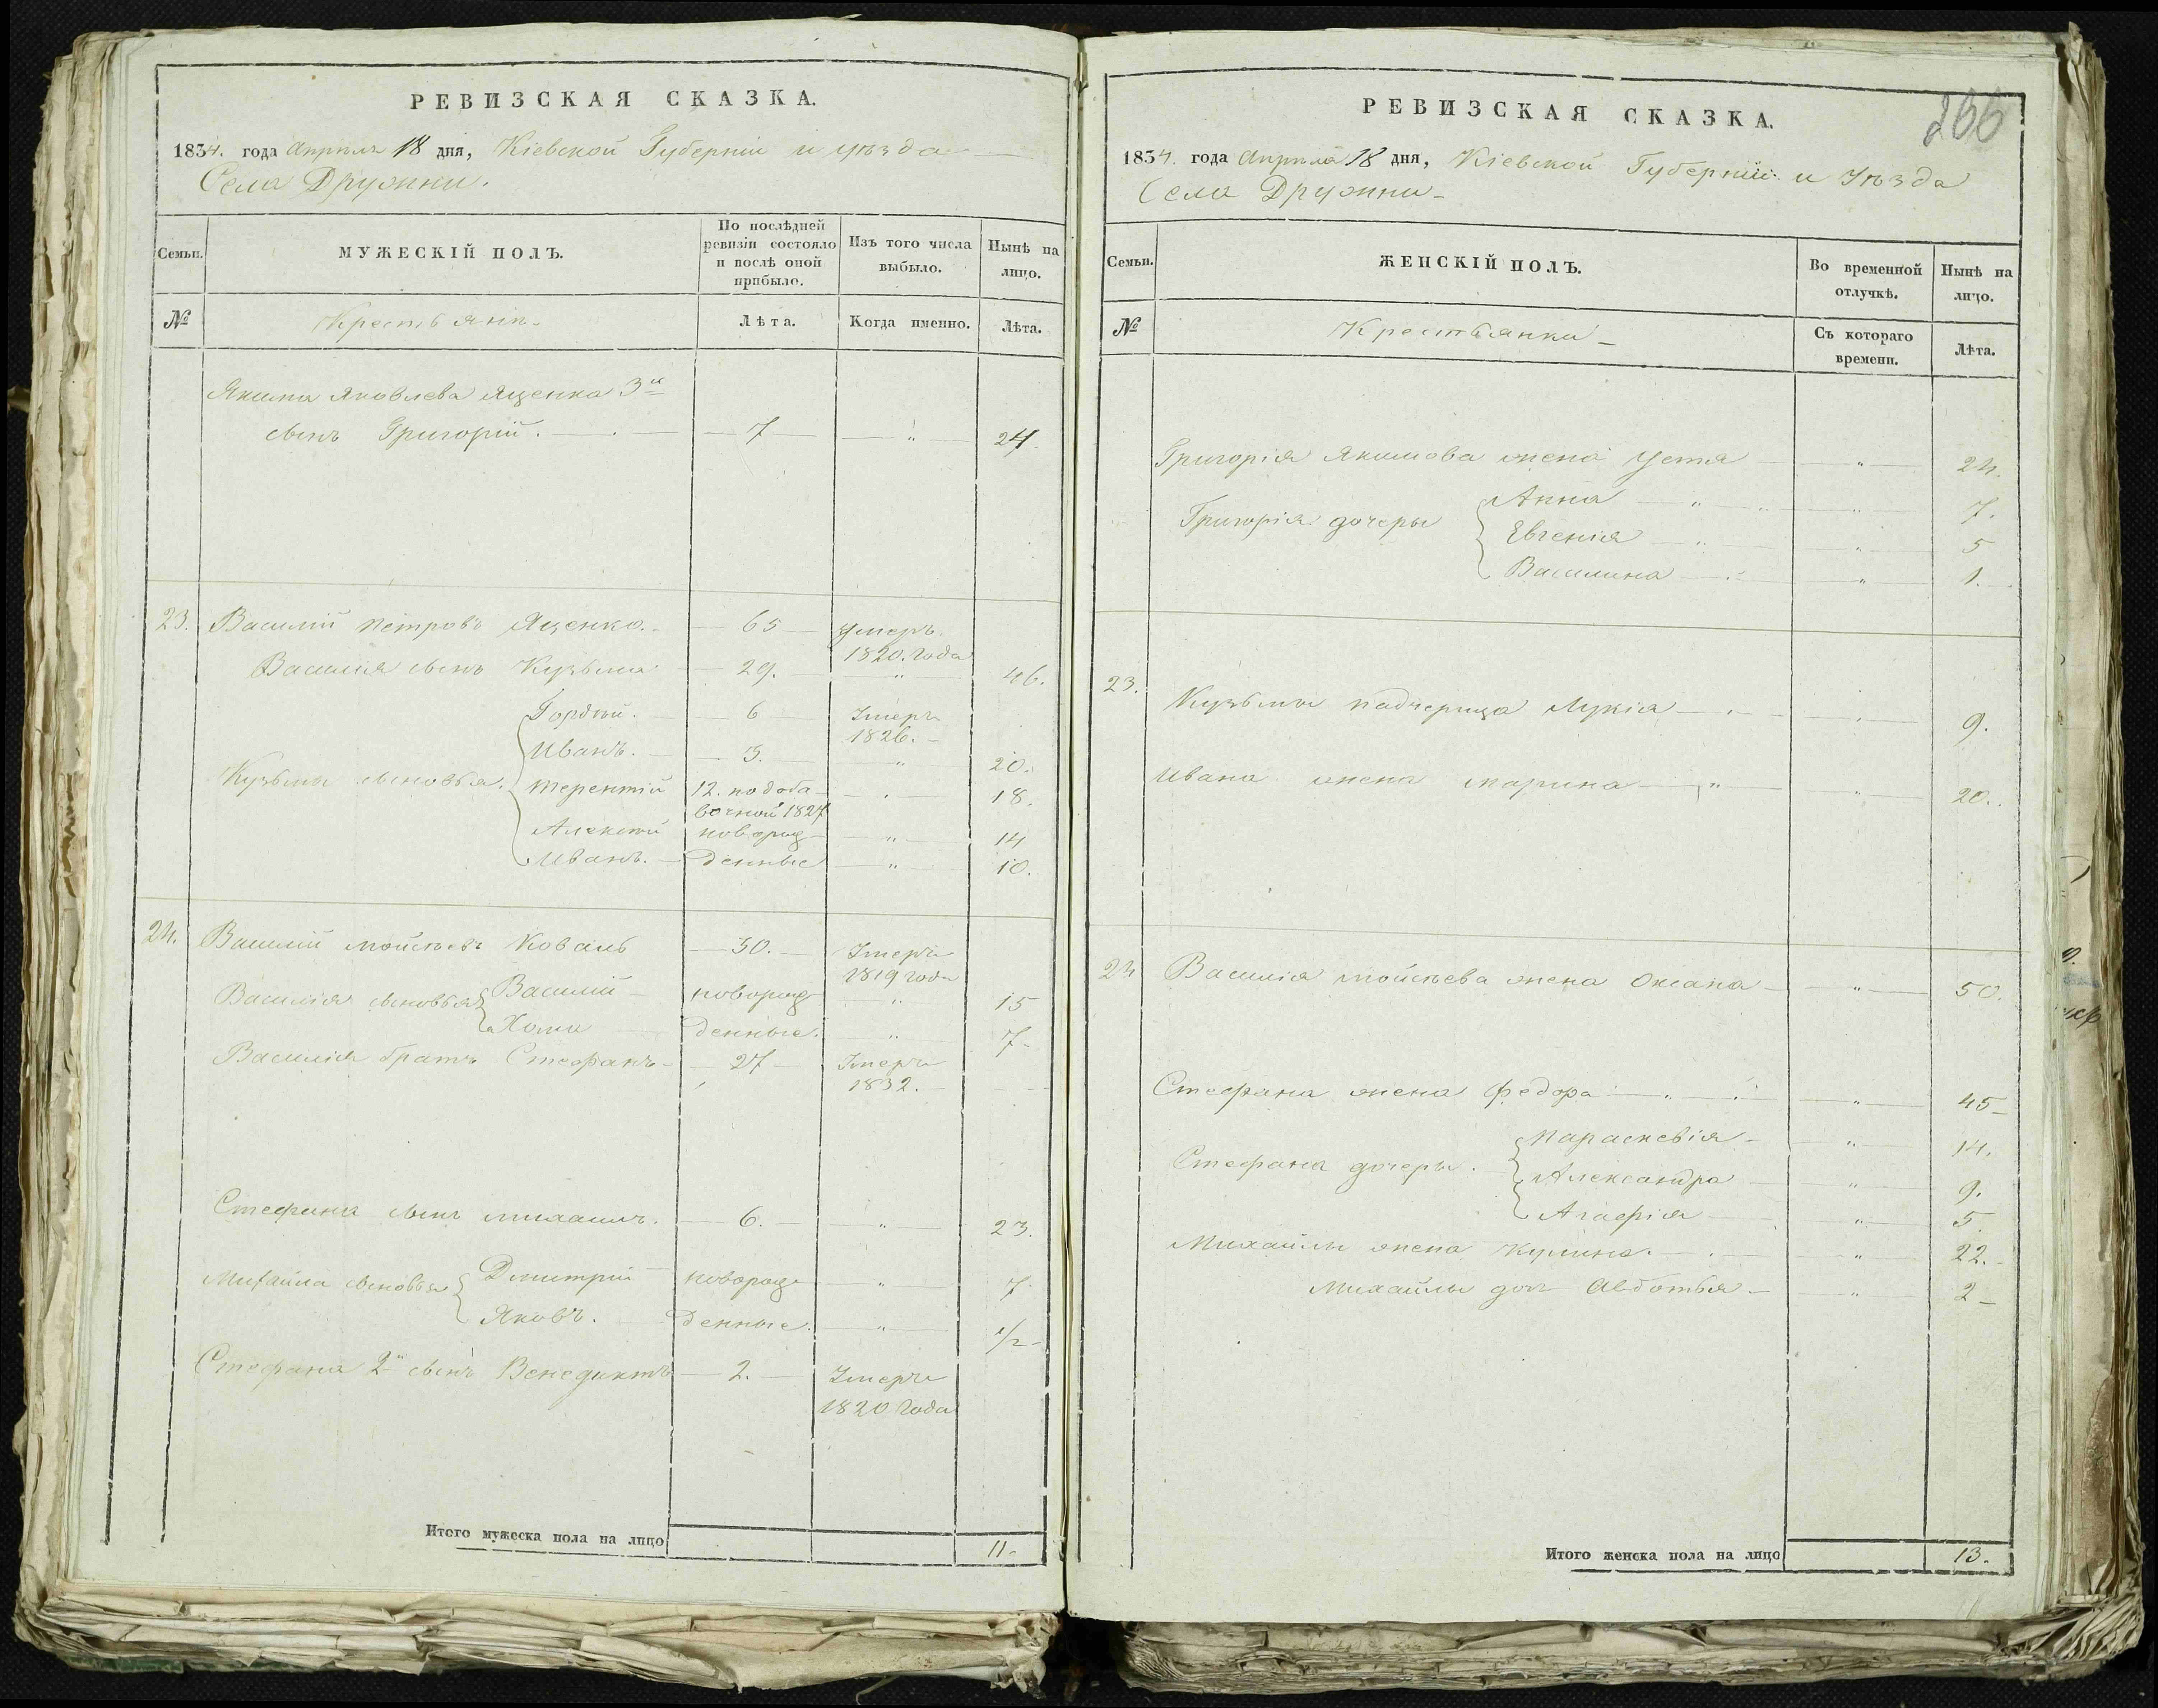 РЕВИЗСКАЯ СКАЗКА.
1834. года Апрѣля 18 дня, Кіевской Губерніи и уѣзда
Села Дружни.
Семьи.
МУЖЕСКІЙ ПОЛЪ.
По послѣдней ревизіи состояло и послѣ оной прибыло.
Изъ того числа выбыло.
Нынѣ на лицо.
№
Крестьяне.
Лѣта.
Когда именно.
Лѣта.
Якима Яковлева Яценка 3й
сынъ Григорій. 7 " 24
23. Василій Петровъ Яценко. 65 Умеръ
1820. года
Василія сынъ Кузьма 29. " 46.
Гордѣй. 6 Умеръ
1826.
Иванъ. 3. " 20.
Кузьмы сыновья. Терентій 12. по доба- " 18.
вочной 1827
Алексѣй новорож- " 14
Иванъ. денные " 10.
24. Василій Мойсѣевъ Коваль 30. Умеръ
1819 года
Василія сыновья Василій новорож- " 15
Хома денные. " 7
Василія братъ Стефанъ 27 Умеръ
1832.
Стефана сынъ Михаилъ. 6. " 23.
Михайла сыновья Дмитрій новорож- " 7.
Яковъ. денные. " 1/2
Стефана 2й сынъ Венедиктъ 2. Умеръ
1820 года
Итого мужеска пола на лицо 11.
266
РЕВИЗСКАЯ СКАЗКА.
1834. года Апрѣля 18 дня, Кіевской Губерніи и Уѣзда
Села Дружни
Семьи.
ЖЕНСКІЙ ПОЛЪ.
Во временной отлучкѣ.
Нынѣ на лицо.
№
Крестьянки
Съ котораго времени.
Лѣта.
Григорія Якимова жена Устя " 24.
Анна " 7.
Григорія дочеры Евгенія " 5
Василина " 1.
23. Кузьмы падчерица Лукія " 9.
Ивана жена Марина " 20.
24 Василія Мойсѣева жена Оксана " 50.
Стефана жена Федора " 45
Параскевія " 14.
Стефана дочеры. Александра " 9.
Агафія " 5.
Михайлы жена Кулина. " 22.
Михайлы доч Авдотья " 2
Итого женска пола на лицо 13.